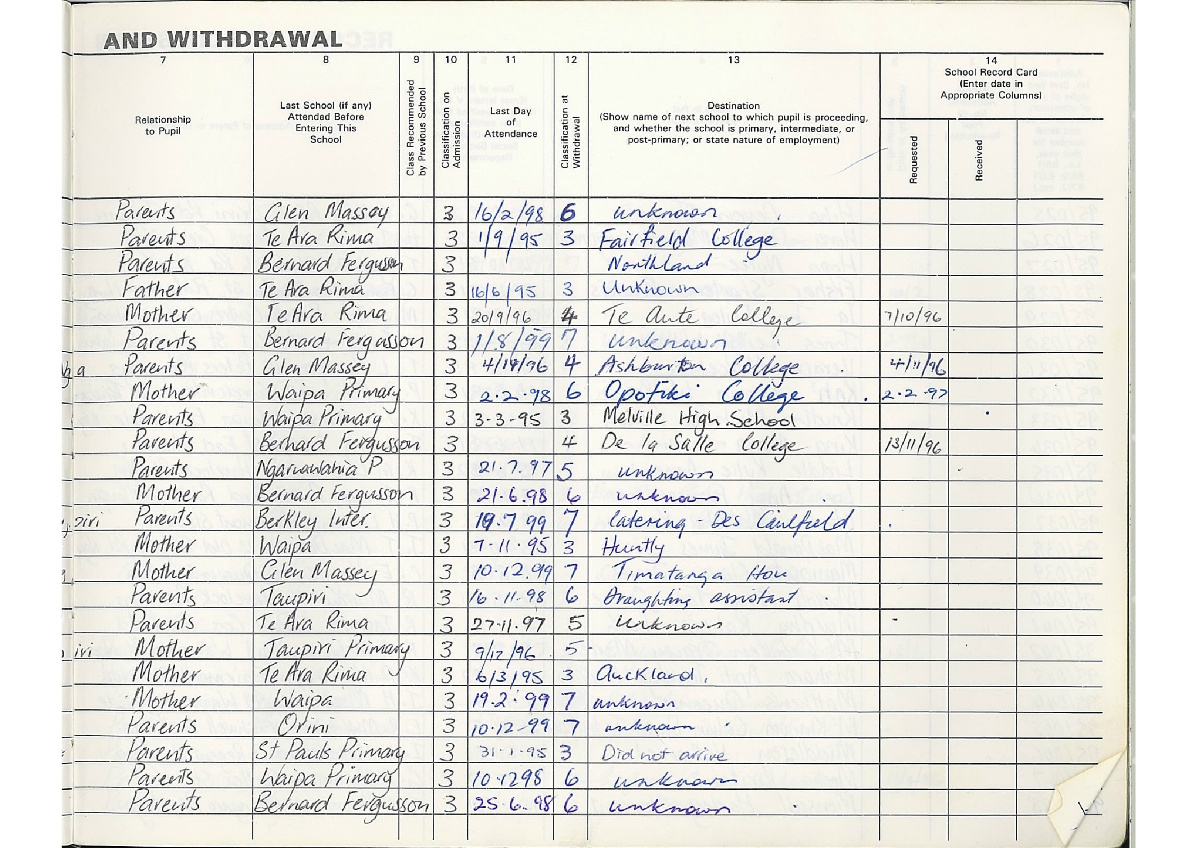 AND WITHDRAWAL
7 8 9 10 11 12 13 14
Relationship to Pupil
Last School (if any) Attended Before Entering This School
Class Recommended by Previous School
Classification on Admission
Last Day of Attendance
Classification at Withdrawal
Destination
(Show name of next school to which pupil is proceeding, and whether the school is primary, intermediate, or post-primary; or state nature of employment)
School Record Card (Enter date in Appropriate Columns)
Requested
Received
Parents Glen Massey 3 16/2/98 6 unknown
Parents Te Ara Rima 3 1/9/95 3 Fairfield College
Parents Bernard Fergusson 3 Northland
Father Te Ara Rima 3 16/6/95 3 Unknown
Mother Te Ara Rima 3 20/9/96 4 Te Aute College 7/10/96
Parents Bernard Fergusson 3 1/8/99 7 unknown
a Parents Glen Massey 3 4/ /96 4 Ashburton College 4/11/96
Mother Waipa Primary 3 2.2.98 6 Opotiki College 2.2.97
Parents Waipa Primary 3 3-3-95 3 Melville High School
Parents Bernard Fergusson 3 4 De la Salle College 13/11/96
Parents Ngaruawahia P 3 21.7.97 5 unknown
Mother Bernard Fergusson 3 21.6.98 6 unknown
ziri Parents Berkley Inter. 3 19.7 99 7 Catering - Des Caulfield
Mother Waipa 3 7-11-95 3 Huntly
Mother Glen Massey 3 10.12.99 7 Timatanga Hou
Parents Taupiri 3 16.11.98 6 Draughting assistant
Parents Te Ara Rima 3 27.11.97 5 unknown
iri Mother Taupiri Primary 3 9/12/96 5
Mother Te Ara Rima 3 6/3/95 3 Auckland.
Mother Waipa 3 19.2.99 7 unknown
Parents Orini 3 10.12-99 7 unknown
Parents St Pauls Primary 3 31.1.95 3 Did not arrive
Parents Waipa Primary 3 10.1298 6 unknown
Parents Bernard Fergusson 3 25.6.98 6 unknown